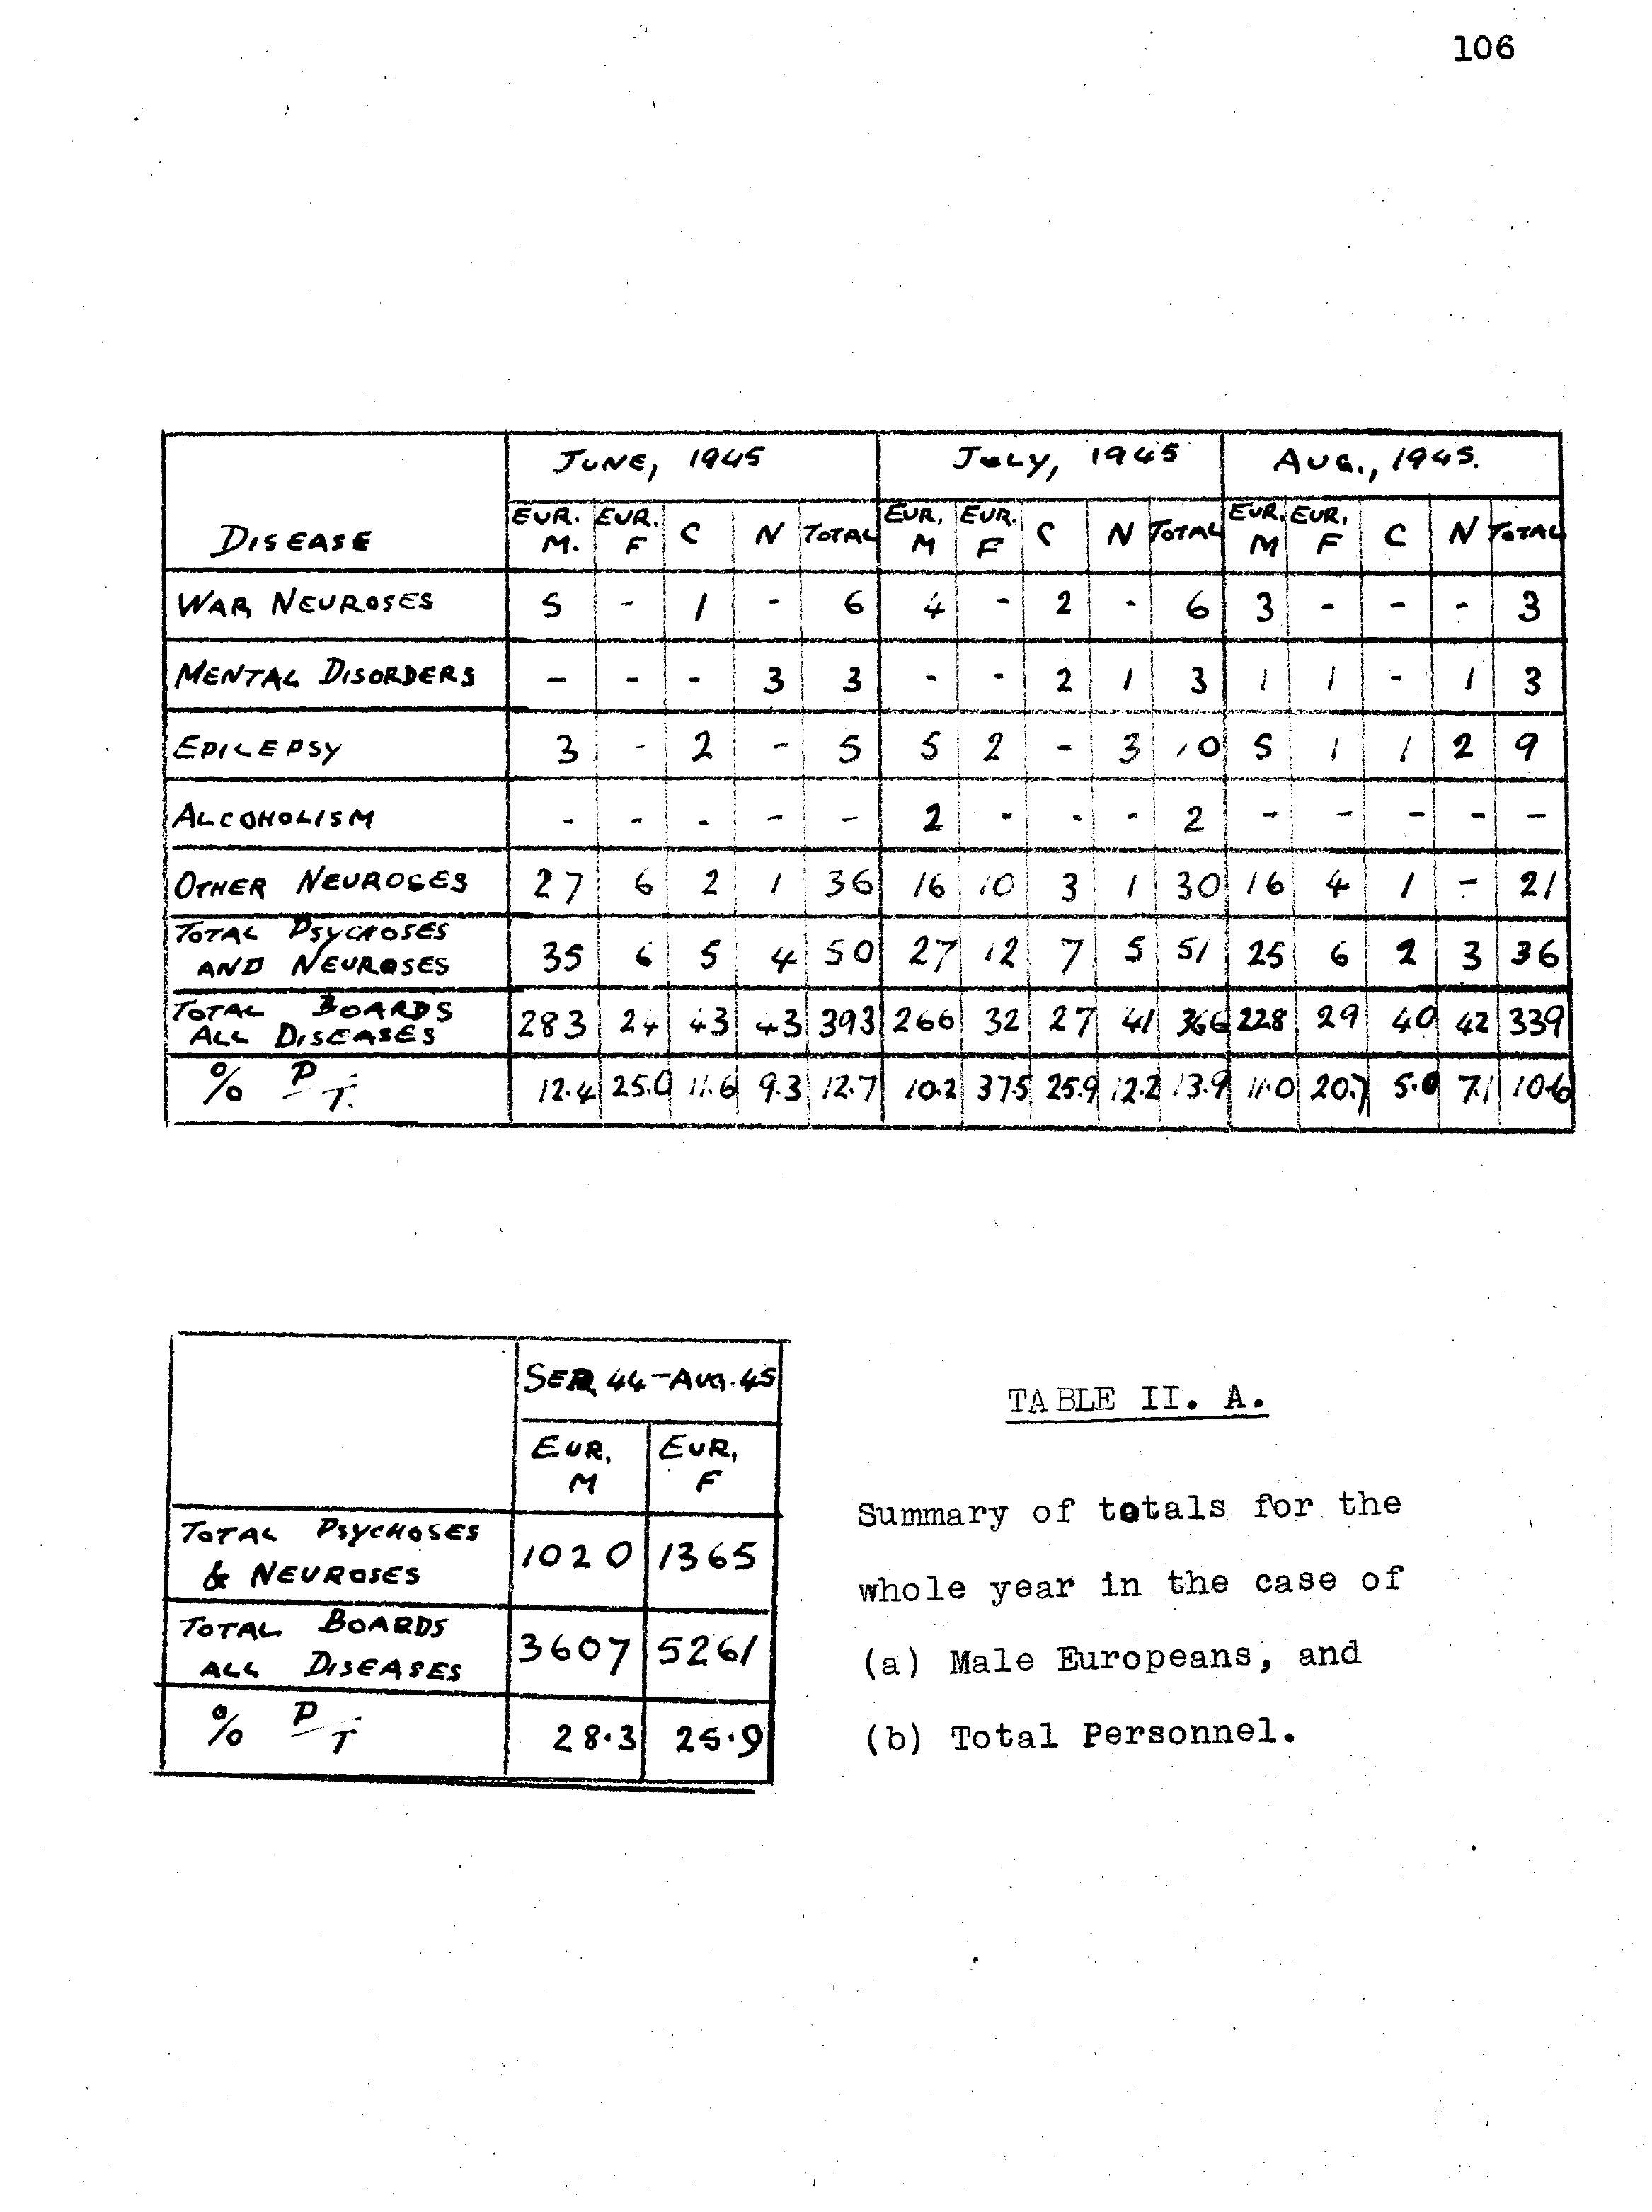 106
JUNE, 1945 JULY, 1945 AUG., 1945.
DISEASE EUR. M. EUR. F C N TOTAL EUR. M EUR. F C N TOTAL EUR. M EUR. F C N TOTAL
WAR NEUROSES 5 - 1 - 6 4 - 2 - 6 3 - - - 3
MENTAL DISORDERS - - - 3 3 - - 2 1 3 1 1 - 1 3
EPILEPSY 3 - 2 - 5 5 2 - 3 10 5 1 1 2 9
ALCOHOLISM - - - - - 2 - - - 2 - - - - -
OTHER NEUROSES 27 6 2 1 36 16 10 3 1 30 16 4 1 - 21
TOTAL PSYCHOSES
AND NEUROSES 35 6 5 4 50 27 12 7 5 51 25 6 2 3 36
TOTAL BOARDS
ALL DISEASES 283 24 43 43 393 266 32 27 41 366 228 29 40 42 339
% P/T. 12.4 25.0 11.6 9.3 12.7 10.2 37.5 25.9 12.2 13.9 11.0 20.7 5.0 7.1 10.6
SEP. 44-AUG. 45
EUR. M EUR. F
TOTAL PSYCHOSES
& NEUROSES 1020 1365
TOTAL BOARDS
ALL DISEASES 3607 5261
% P/T. 28.3 25.9
TABLE II. A.
Summary of totals for the
whole year in the case of
(a) Male Europeans, and
(b) Total Personnel.